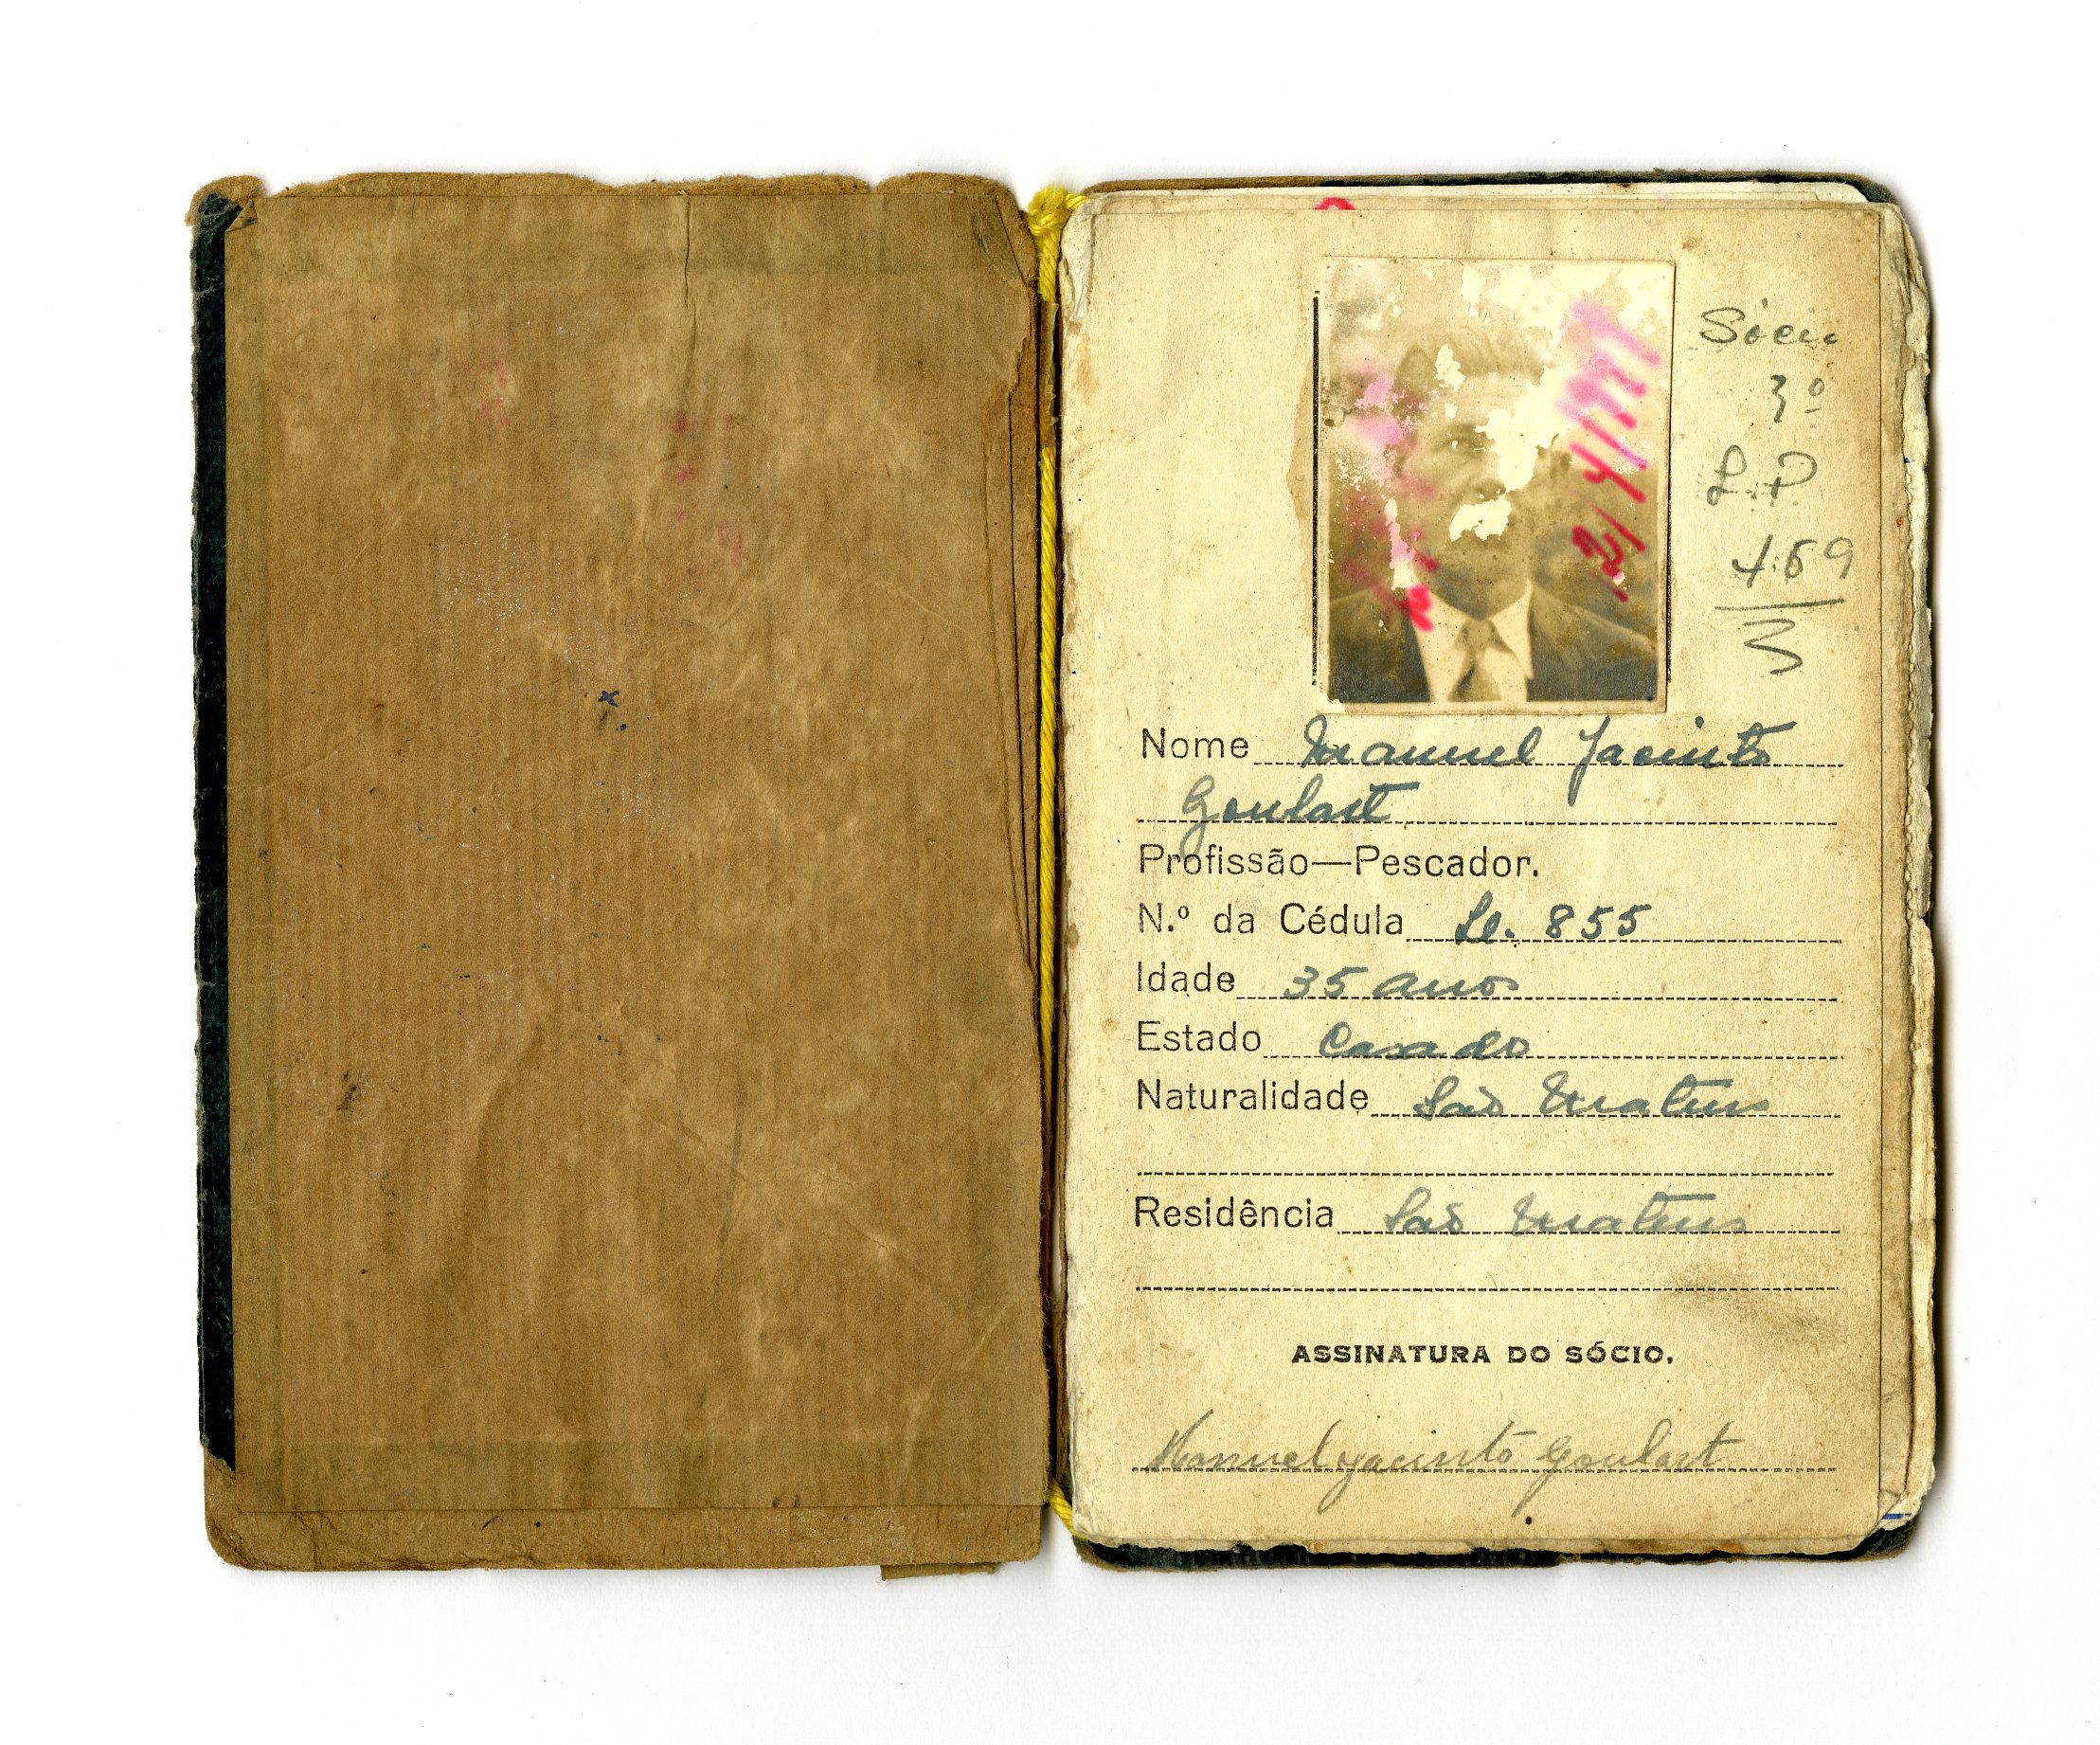 Sócio
3º
L.P.
469
Nome Manuel Jacinto
Goulart
Profissão—Pescador.
N.º da Cédula Le. 855
Idade 35 anos
Estado Casado
Naturalidade São Mateus
Residência São Mateus
ASSINATURA DO SÓCIO.
Manuel jacinto Goulart